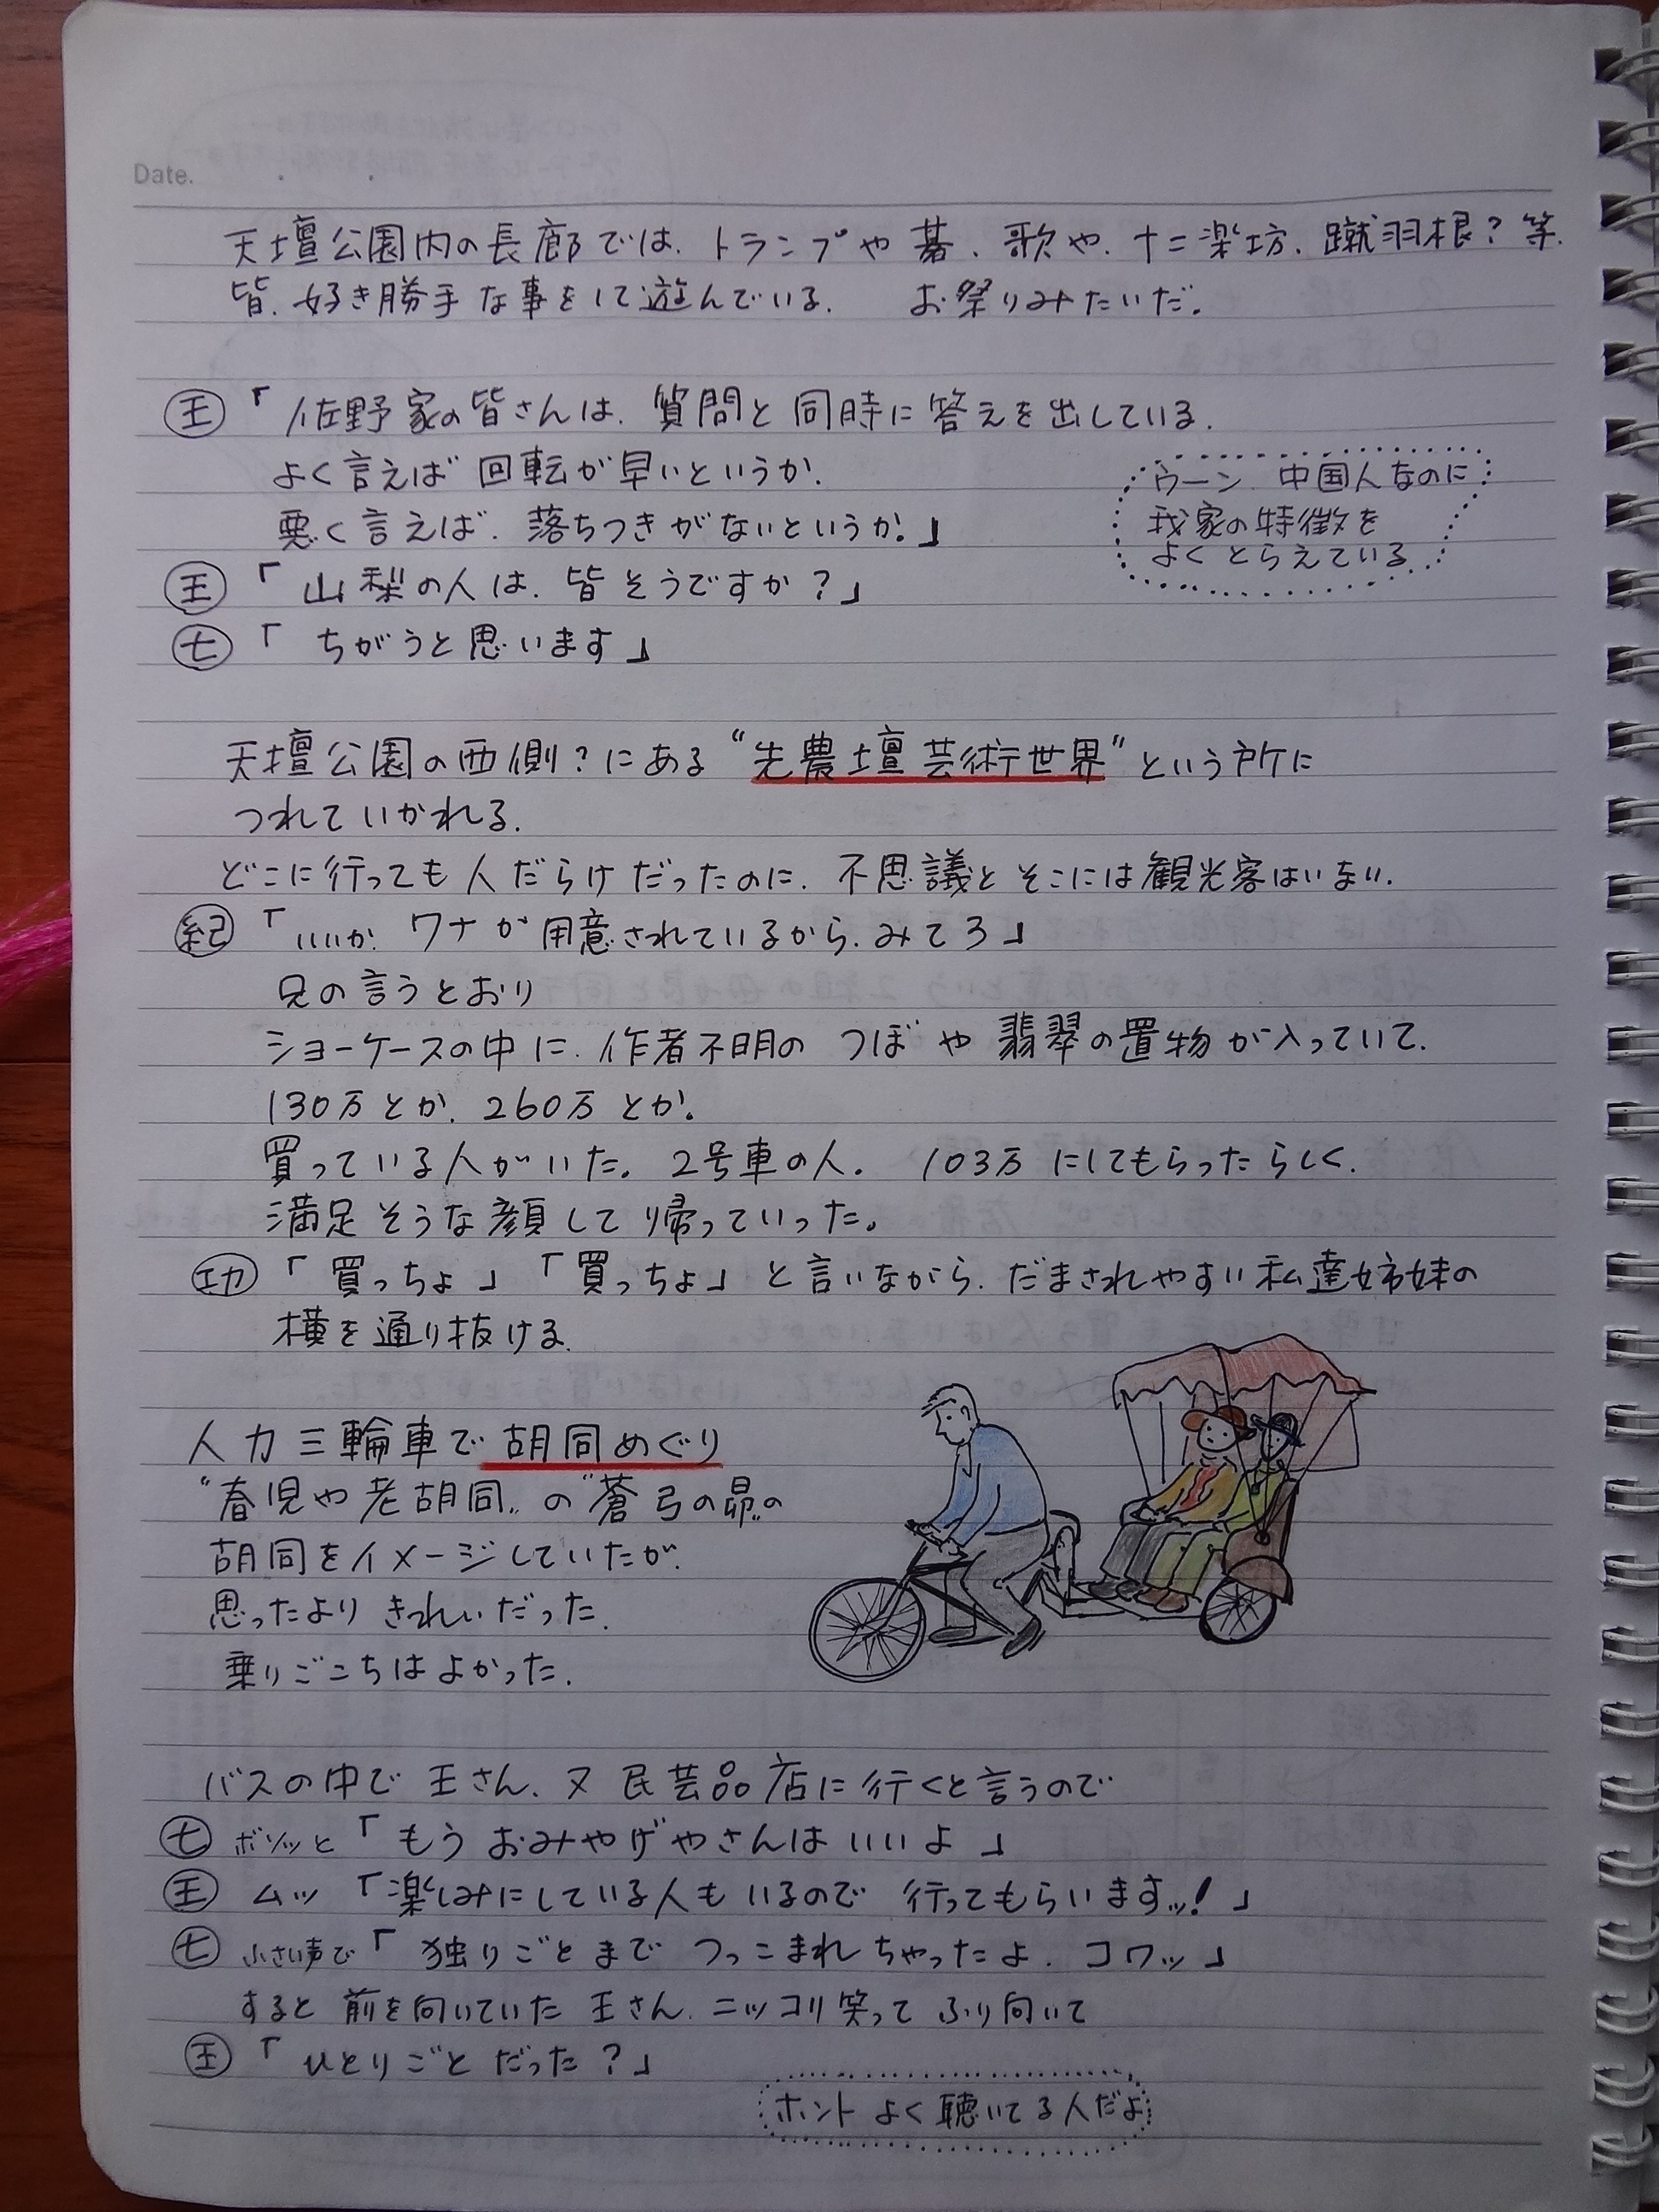 Date.
天壇公園内の長廊では、トランプや碁、歌や、十二楽坊、蹴羽根？等、
皆、好き勝手な事をして遊んでいる。　お祭りみたいだ。
王「佐野家の皆さんは、質問と同時に答えを出している。
よく言えば 回転が早いというか、
悪く言えば、落ちつきがないというか。」
ウーン 中国人なのに
我家の特徴を
よくとらえている
王「山梨の人は、皆そうですか？」
七「ちがうと思います」
天壇公園の西側？にある“先農壇芸術世界”という所に
つれていかれる。
どこに行っても人だらけだったのに、不思議とそこには観光客はいない。
紀「いいか、ワナが用意されているから、みてろ」
兄の言うとおり
ショーケースの中に、作者不明の つぼや 翡翠の置物が入っていて、
130万とか、260万とか。
買っている人がいた。2号車の人。　103万にしてもらったらしく、
満足そうな顔して帰っていった。
功「買っちょ」「買っちょ」と言いながら、だまされやすい私達姉妹の
横を通り抜ける。
人力三輪車で胡同めぐり
“春児や老胡同”の“蒼弓の昴”の
胡同をイメージしていたが、
思ったより きれいだった。
乗りごこちはよかった。
バスの中で 王さん、又 民芸品店に行くと言うので
七 ボソッと「もう おみやげやさんは いいよ」
王 ムッ「楽しみにしている人も いるので 行ってもらいますッ！」
七 小さい声で「独りごとまで つっこまれちゃったよ、コワッ」
すると 前を向いていた 王さん、ニッコリ笑って ふり向いて
王「ひとりごと だった？」
ホント よく聴いてる人だよ